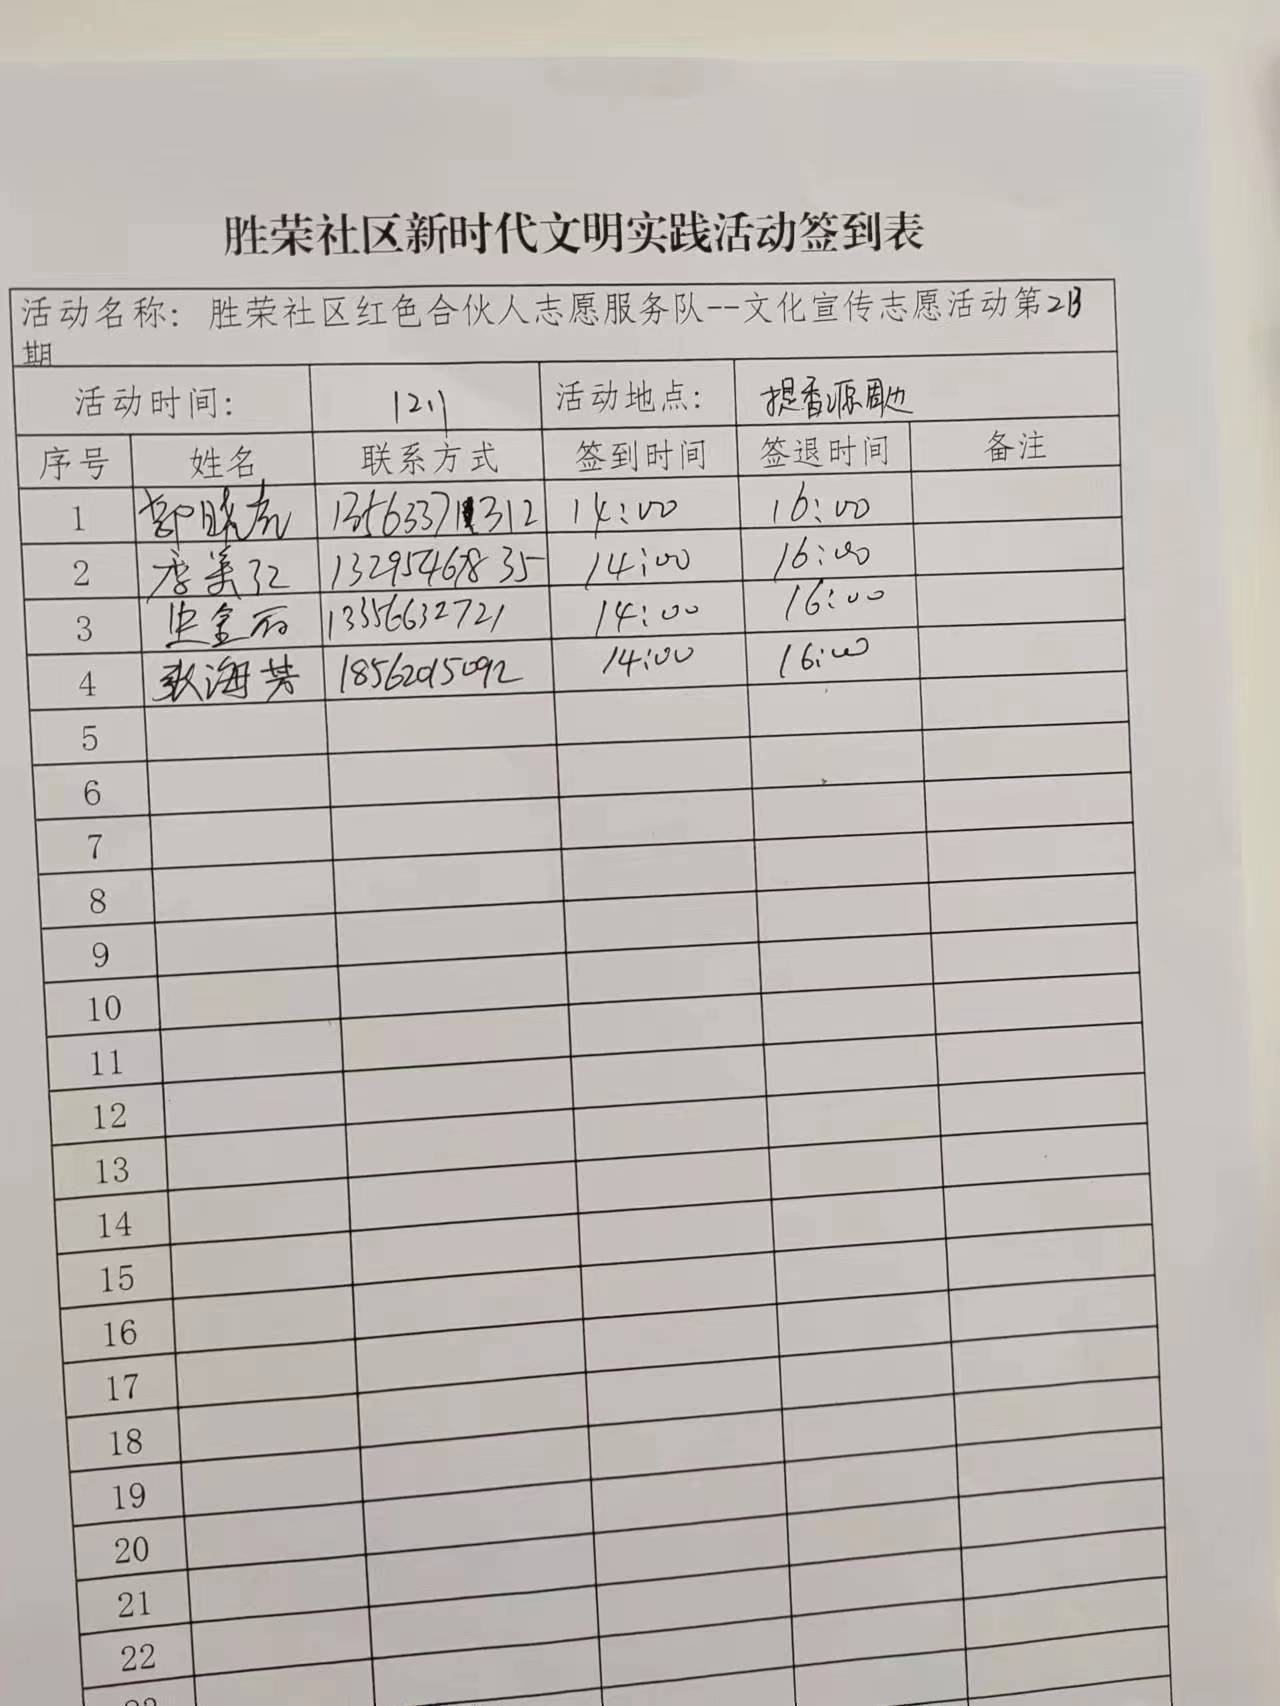 胜荣社区新时代文明实践活动签到表
活动名称：胜荣社区红色合伙人志愿服务队--文化宣传志愿活动第23
期
活动时间： 12.1 活动地点： 提香源周边
序号 姓名 联系方式 签到时间 签退时间 备注
1 郭晓 312 14:00 16:00
2 李美江 13295467835 14:00 16:00
3 史金丽 13356632721 14:00 16:00
4 张海芳 14:00 16:00
5
6
7
8
9
10
11
12
13
14
15
16
17
18
19
20
21
22
23